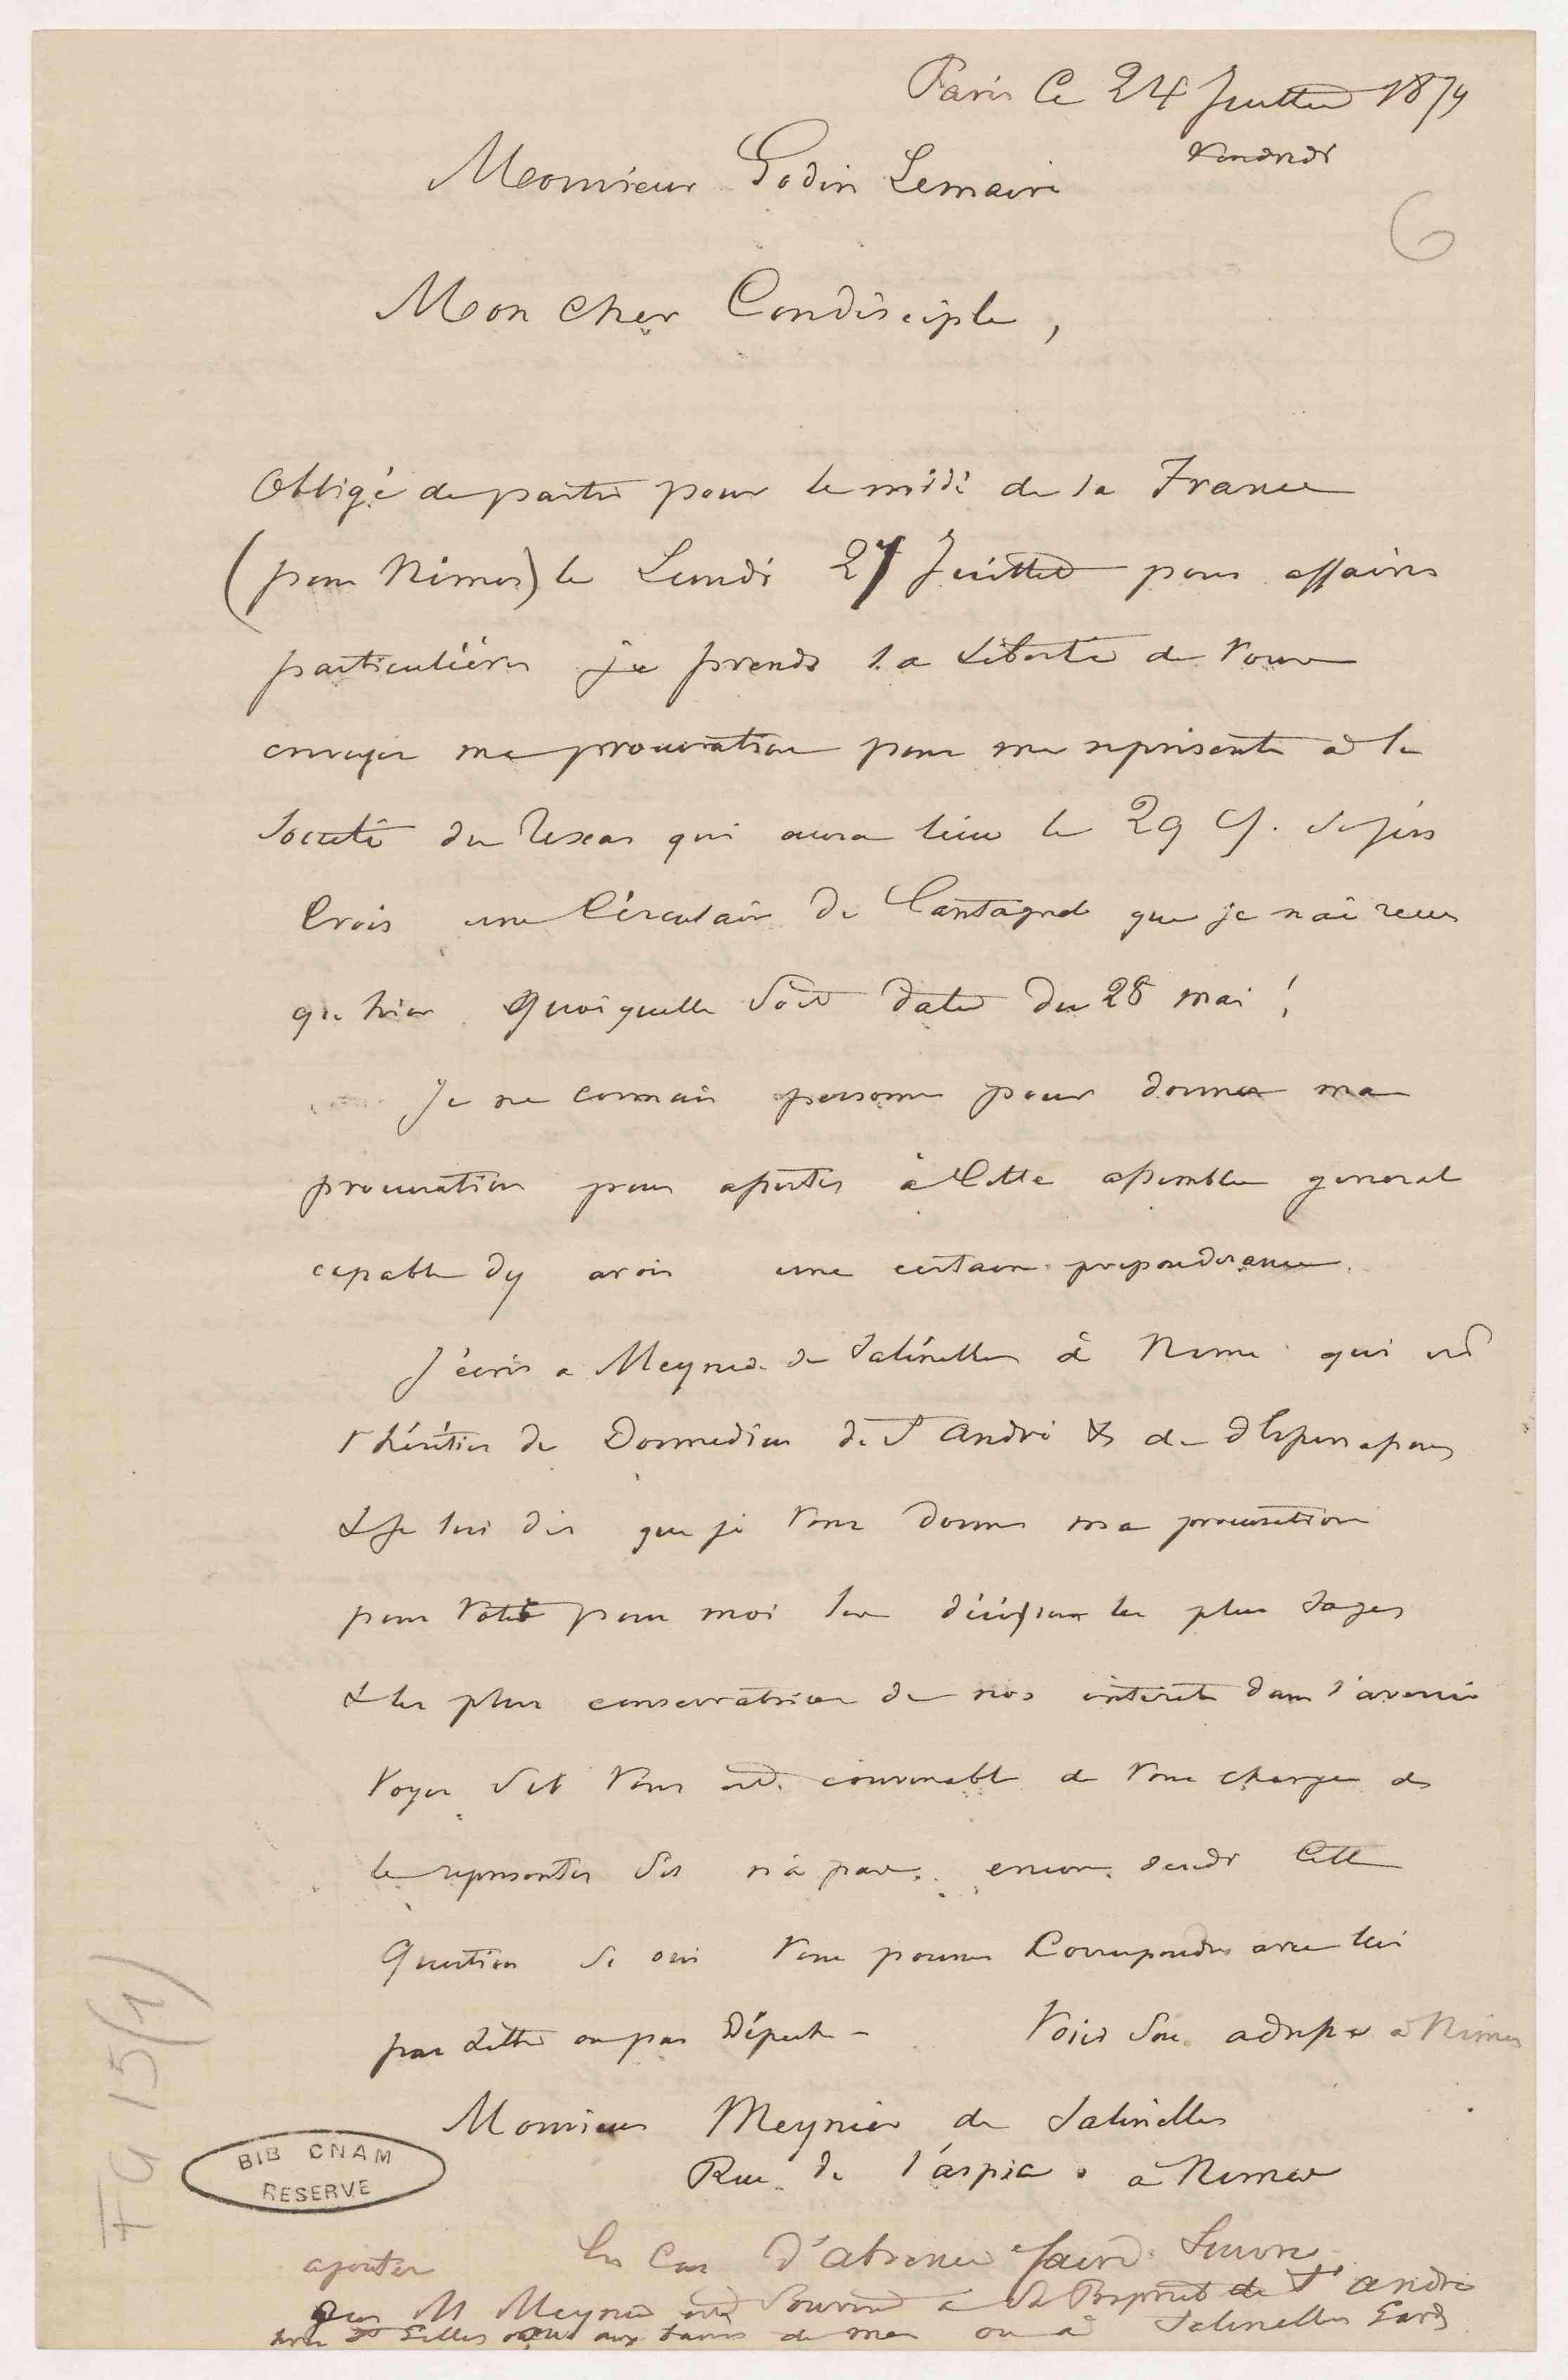 Paris Ce 24 Juillet 1874
Vendredi
Monsieur Godin Lemaire
6
Mon Cher Condisciple,
Obligé de partir pour le midi de la France
(pour Nimes) le Lundi 27 Juillet pour affaires
particulières je prends la Liberté de vous
envoyer ma procuration pour me représenter à la
Société du Texas qui aura lieu le 29 
Crois une Circulaire de Cantagrel que je n'ai recue
qu'hier Quoiquelle Soit datée du 28 mai !
Je ne connais personne pour donner ma
procuration pour assister à Cette assemblée general
capable d'y avoir une certaine preponderance.
J'écris a Meynier de Salinelles à Nimes qui est
l'héritier de Dormedieu de St André & de
& Je lui dis que je vous donne ma procuration
pour voter pour moi les décisions les plus sages
& les plus conservatrices de nos intérêts dans l'avenir
Voyez S'il vous est convenable de vous charger de
le représenter S'il n'a pas encore Cette
Question Si oui vous pourrez Correspondre avec lui
par Lettre ou par Dépêche - Voici Son adresse a Nimes
Monsieur Meynier de Salinelles
Rue de l'aspic. à Nimes
ajouter En Cas d'absence faire Suivre
que M Meynier est Souvent a St André
St Gilles aux bains de mer ou à Salinelles Gard
BIB CNAM
RESERVE
FG 15(1)